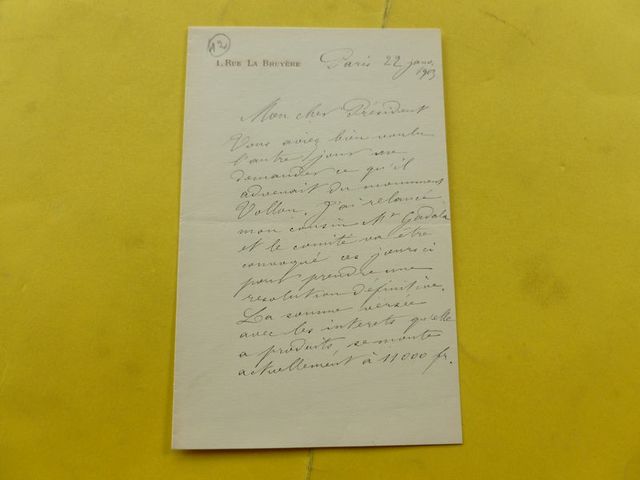 12
1, RUE LA BRUYÈRE
Paris 22 janv.
1903
Mon cher Président
Vous aviez bien voulu
l'autre jour me
demander ce qu'il
advenait du monument
Vollon. J'ai relancé
mon cousin Mr Gadala
et le comité va être
convoqué ces jours ci
pour prendre une
résolution définitive.
La somme versée
avec les interets qu'elle
a produits, se monte
actuellement à 11000 fr.